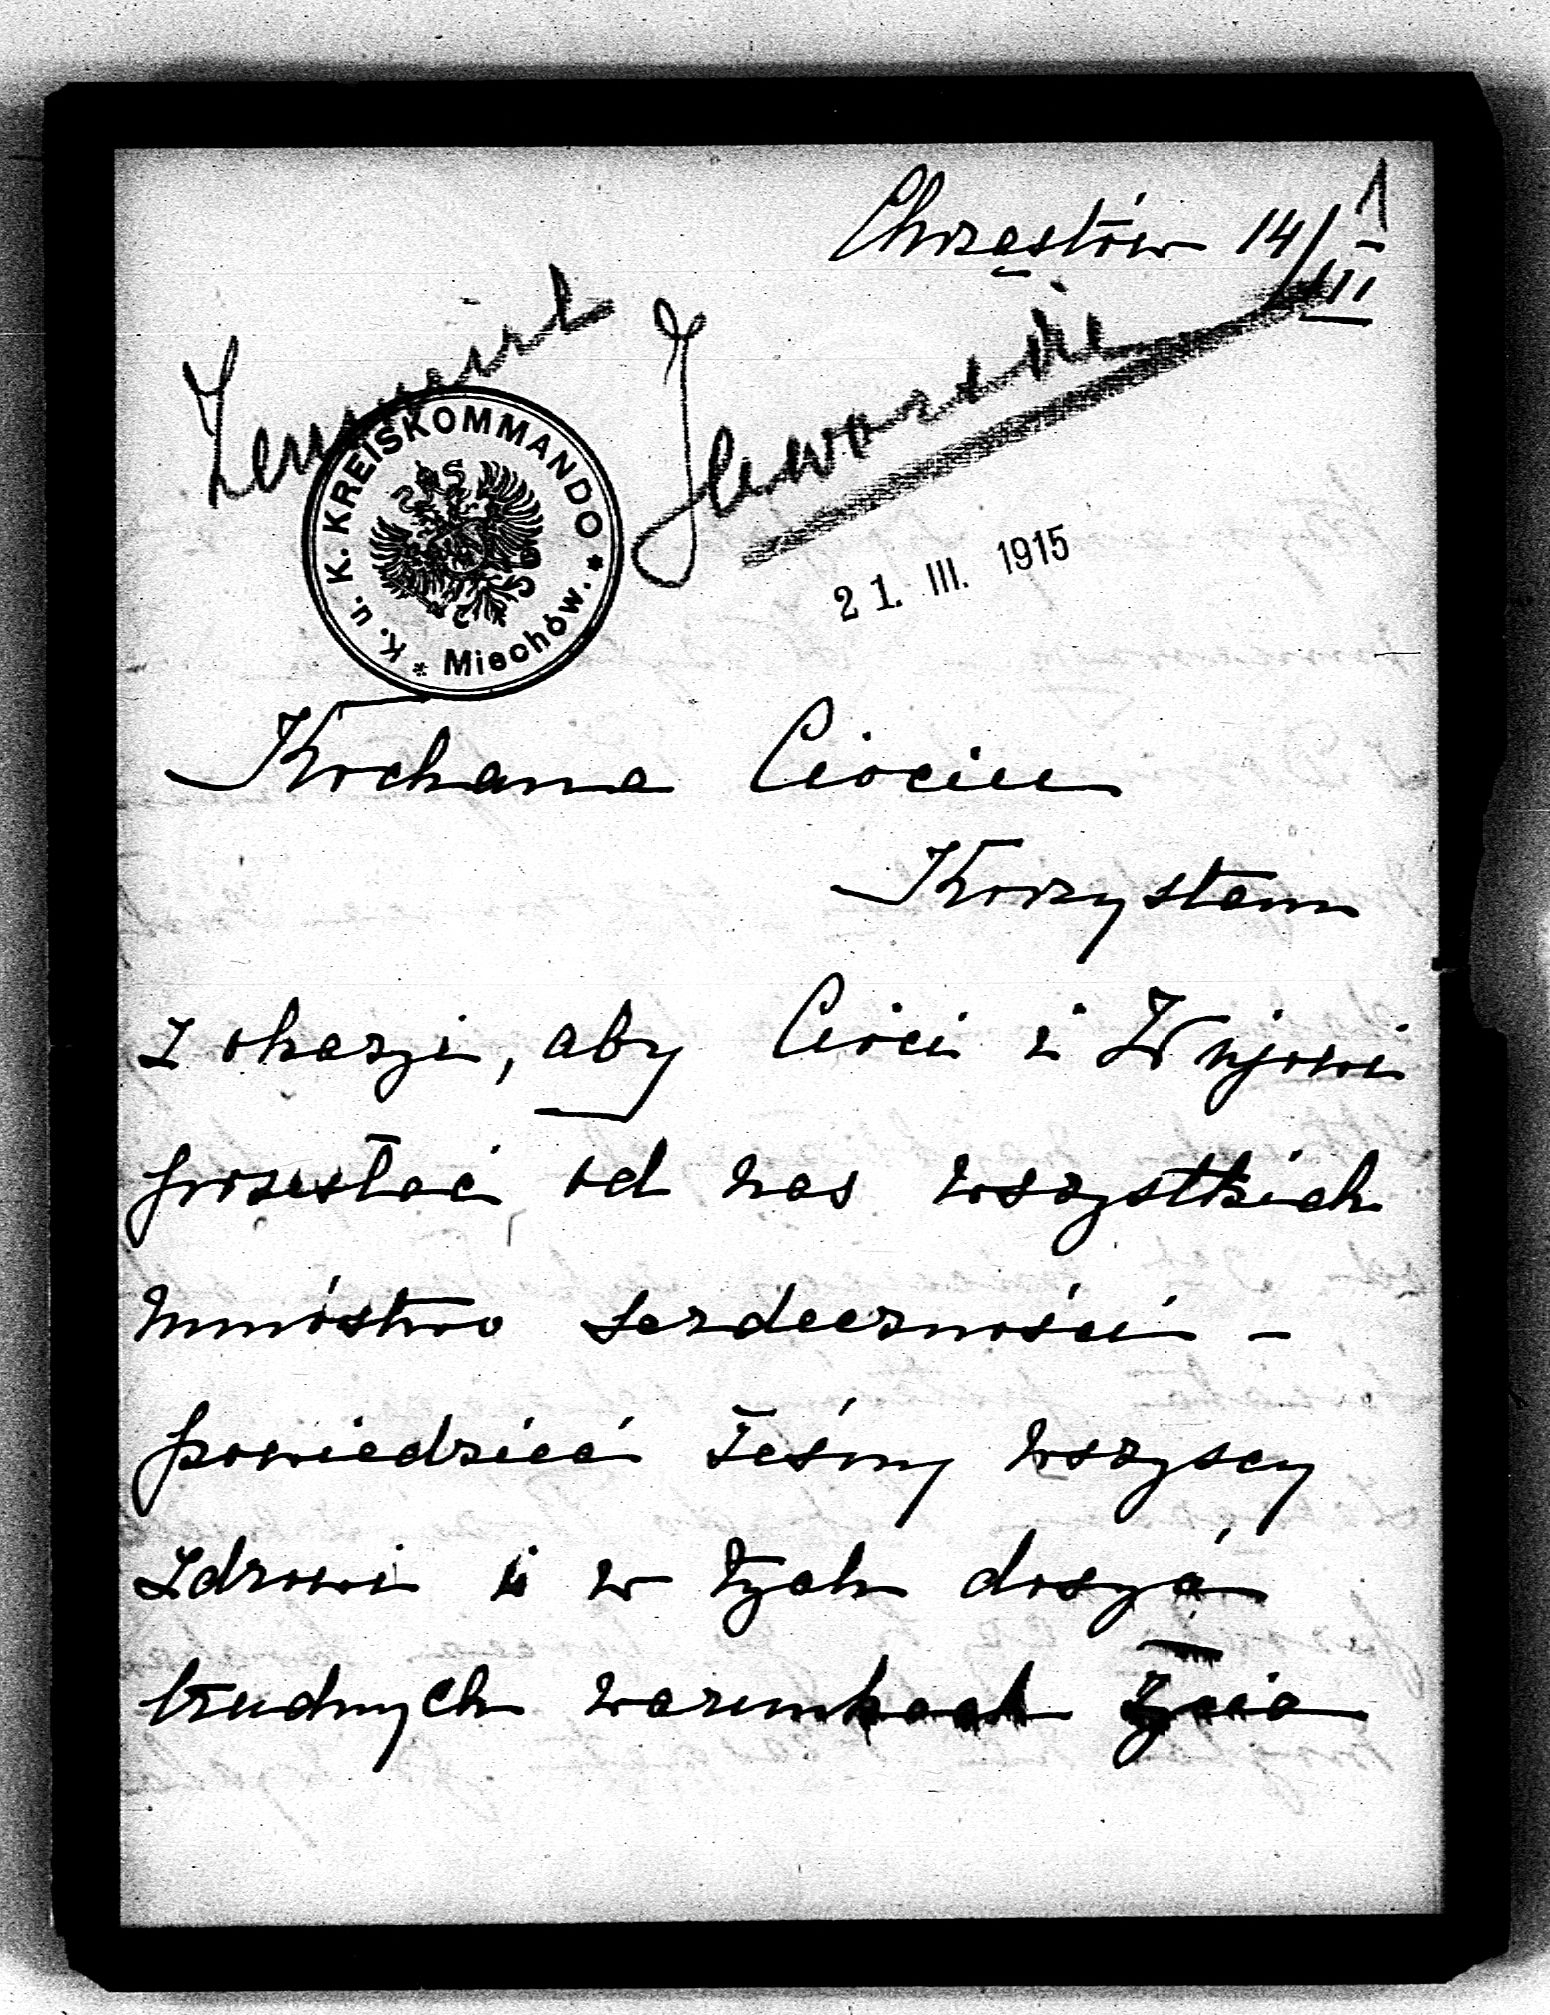 1
Chrząstów 14/III
Zensuriert Jaworski
K. u. K. KREISKOMMANDO * Miechów. *
21. III. 1915
Kochana Ciociu
Korzystam
z okazji, aby Cioci i Wujowi
przesłać od nas wszystkich
mnóstwo serdeczności –
powiedzieć żeśmy wszyscy
zdrowi i w tych dosyć
trudnych warunkach życia